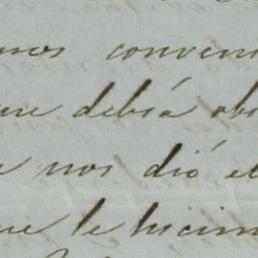 mos conveni
ue debía obs
e nos dió el
ue le hicim